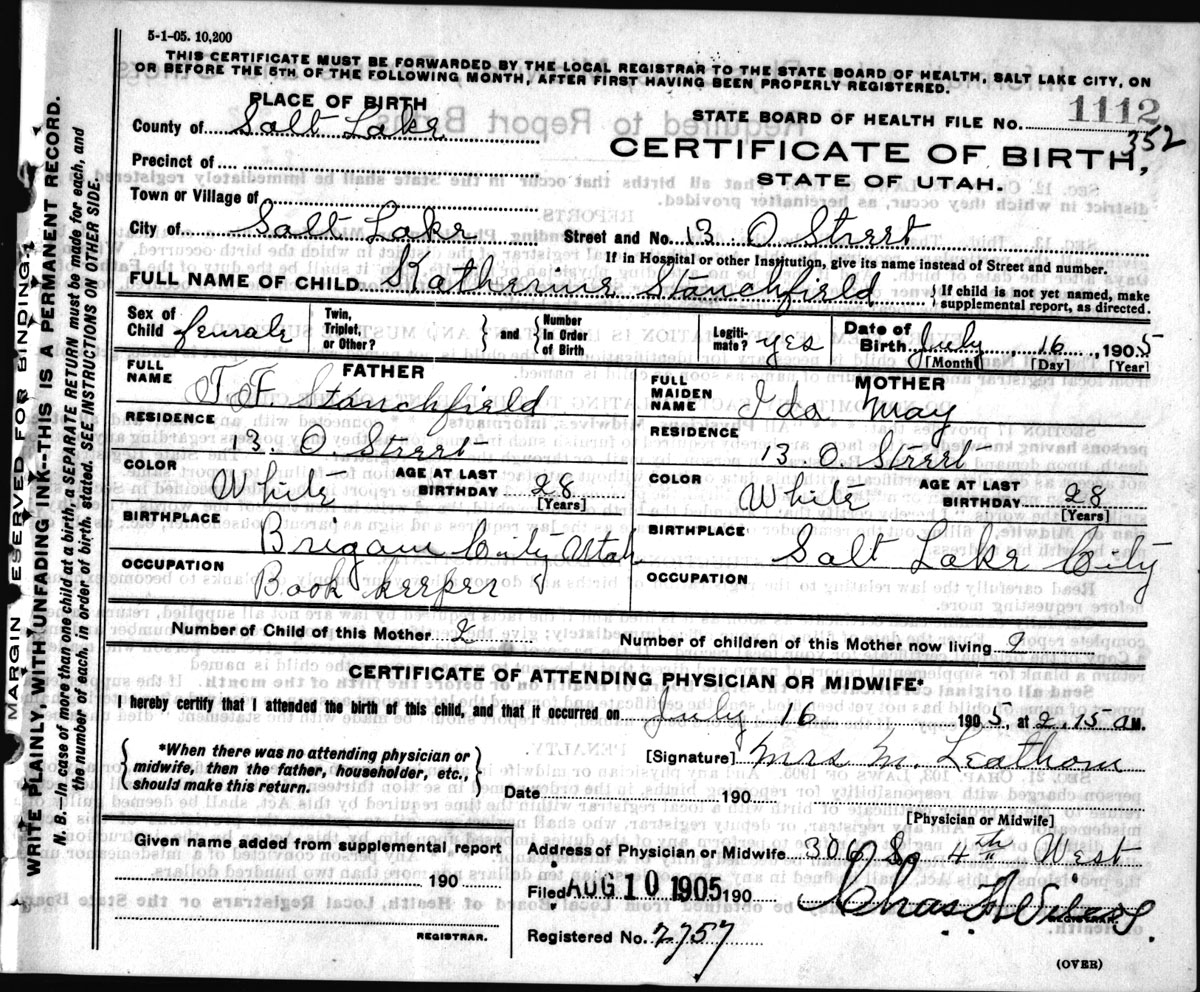 5-1-05. 10,200
THIS CERTIFICATE MUST BE FORWARDED BY THE LOCAL REGISTRAR TO THE STATE BOARD OF HEALTH, SALT LAKE CITY, ON
OR BEFORE THE 5TH OF THE FOLLOWING MONTH, AFTER FIRST HAVING BEEN PROPERLY REGISTERED.
MARGIN RESERVED FOR BINDING.
WRITE PLAINLY, WITH UNFADING INK--THIS IS A PERMANENT RECORD.
N. B.—In case of more than one child at a birth, a SEPARATE RETURN must be made for each, and
the number of each, in order of birth, stated. SEE INSTRUCTIONS ON OTHER SIDE.
PLACE OF BIRTH
STATE BOARD OF HEALTH FILE No. 1112
352
County of Salt Lake
CERTIFICATE OF BIRTH,
Precinct of
STATE OF UTAH.
Town or Village of
City of Salt Lake Street and No. 13 O Street
If in Hospital or other Institution, give its name instead of Street and number.
FULL NAME OF CHILD Katherine Stanchfield { If child is not yet named, make supplemental report, as directed.
Sex of Child female Twin, Triplet, or Other? } and { Number In Order of Birth Legiti- mate? yes Date of Birth July 16, 1905
[Month] [Day] [Year]
FATHER
FULL NAME F Stanchfield
RESIDENCE
13. O. Street
COLOR White AGE AT LAST BIRTHDAY 28
[Years]
BIRTHPLACE
Brigam City Utah
OCCUPATION Book keeper
MOTHER
FULL MAIDEN NAME Ida May
RESIDENCE
13 O Street
COLOR White AGE AT LAST BIRTHDAY 28
[Years]
BIRTHPLACE
Salt Lake City
OCCUPATION
Number of Child of this Mother 2 Number of children of this Mother now living 2
CERTIFICATE OF ATTENDING PHYSICIAN OR MIDWIFE*
I hereby certify that I attended the birth of this child, and that it occurred on July 16 1905, at 2.15 a M.
{ *When there was no attending physician or
midwife, then the father, householder, etc.,
should make this return. }
[Signature] Mrs M. Leathom
Date 190
[Physician or Midwife]
Given name added from supplemental report
190
REGISTRAR.
Address of Physician or Midwife 306 So 4th West
Filed AUG 10 1905 190
REGISTRAR.
Registered No. 2757
(OVER)